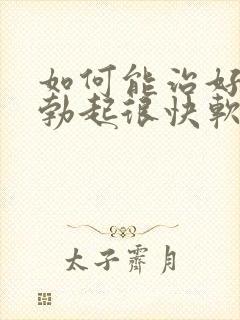 如何能治好
勃起很快軟
太子霽月